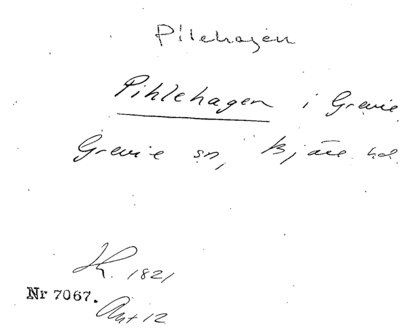 Pilehagen
Pihlehagen i Grevie
Grevie sn, Bjäre hd.
1821
Nr 7067.
Akt 12